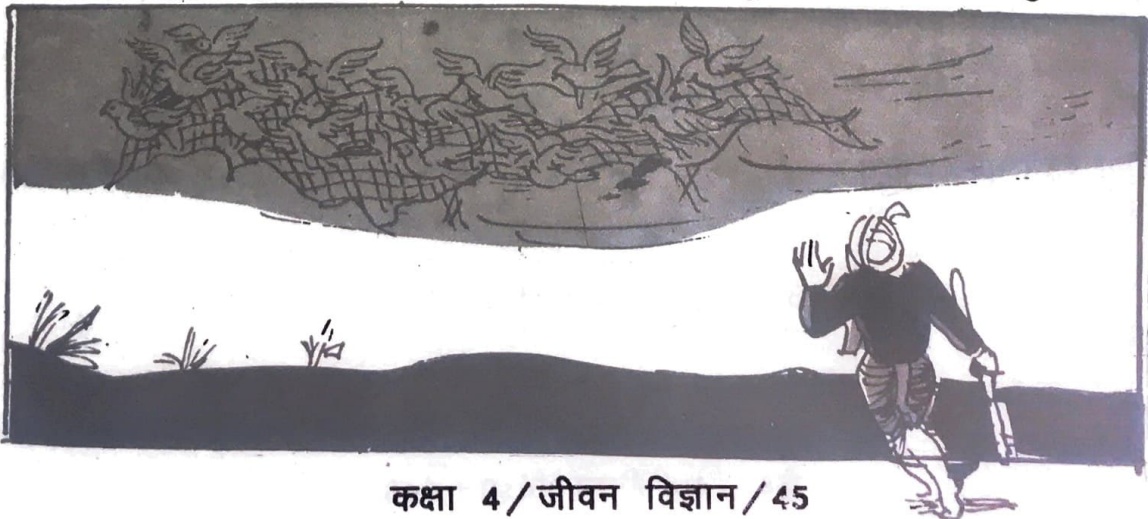 कक्षा 4/जीवन विज्ञान/45